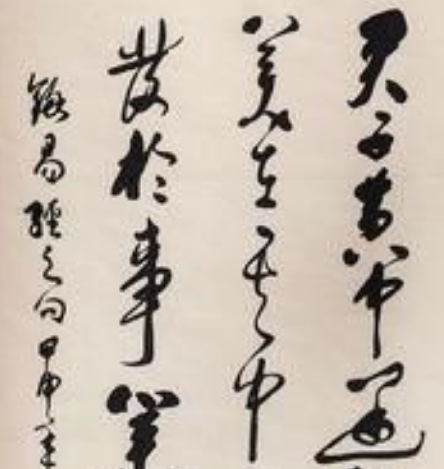 君子黃中通
美在其中
發於事業
錄易經之句甲申